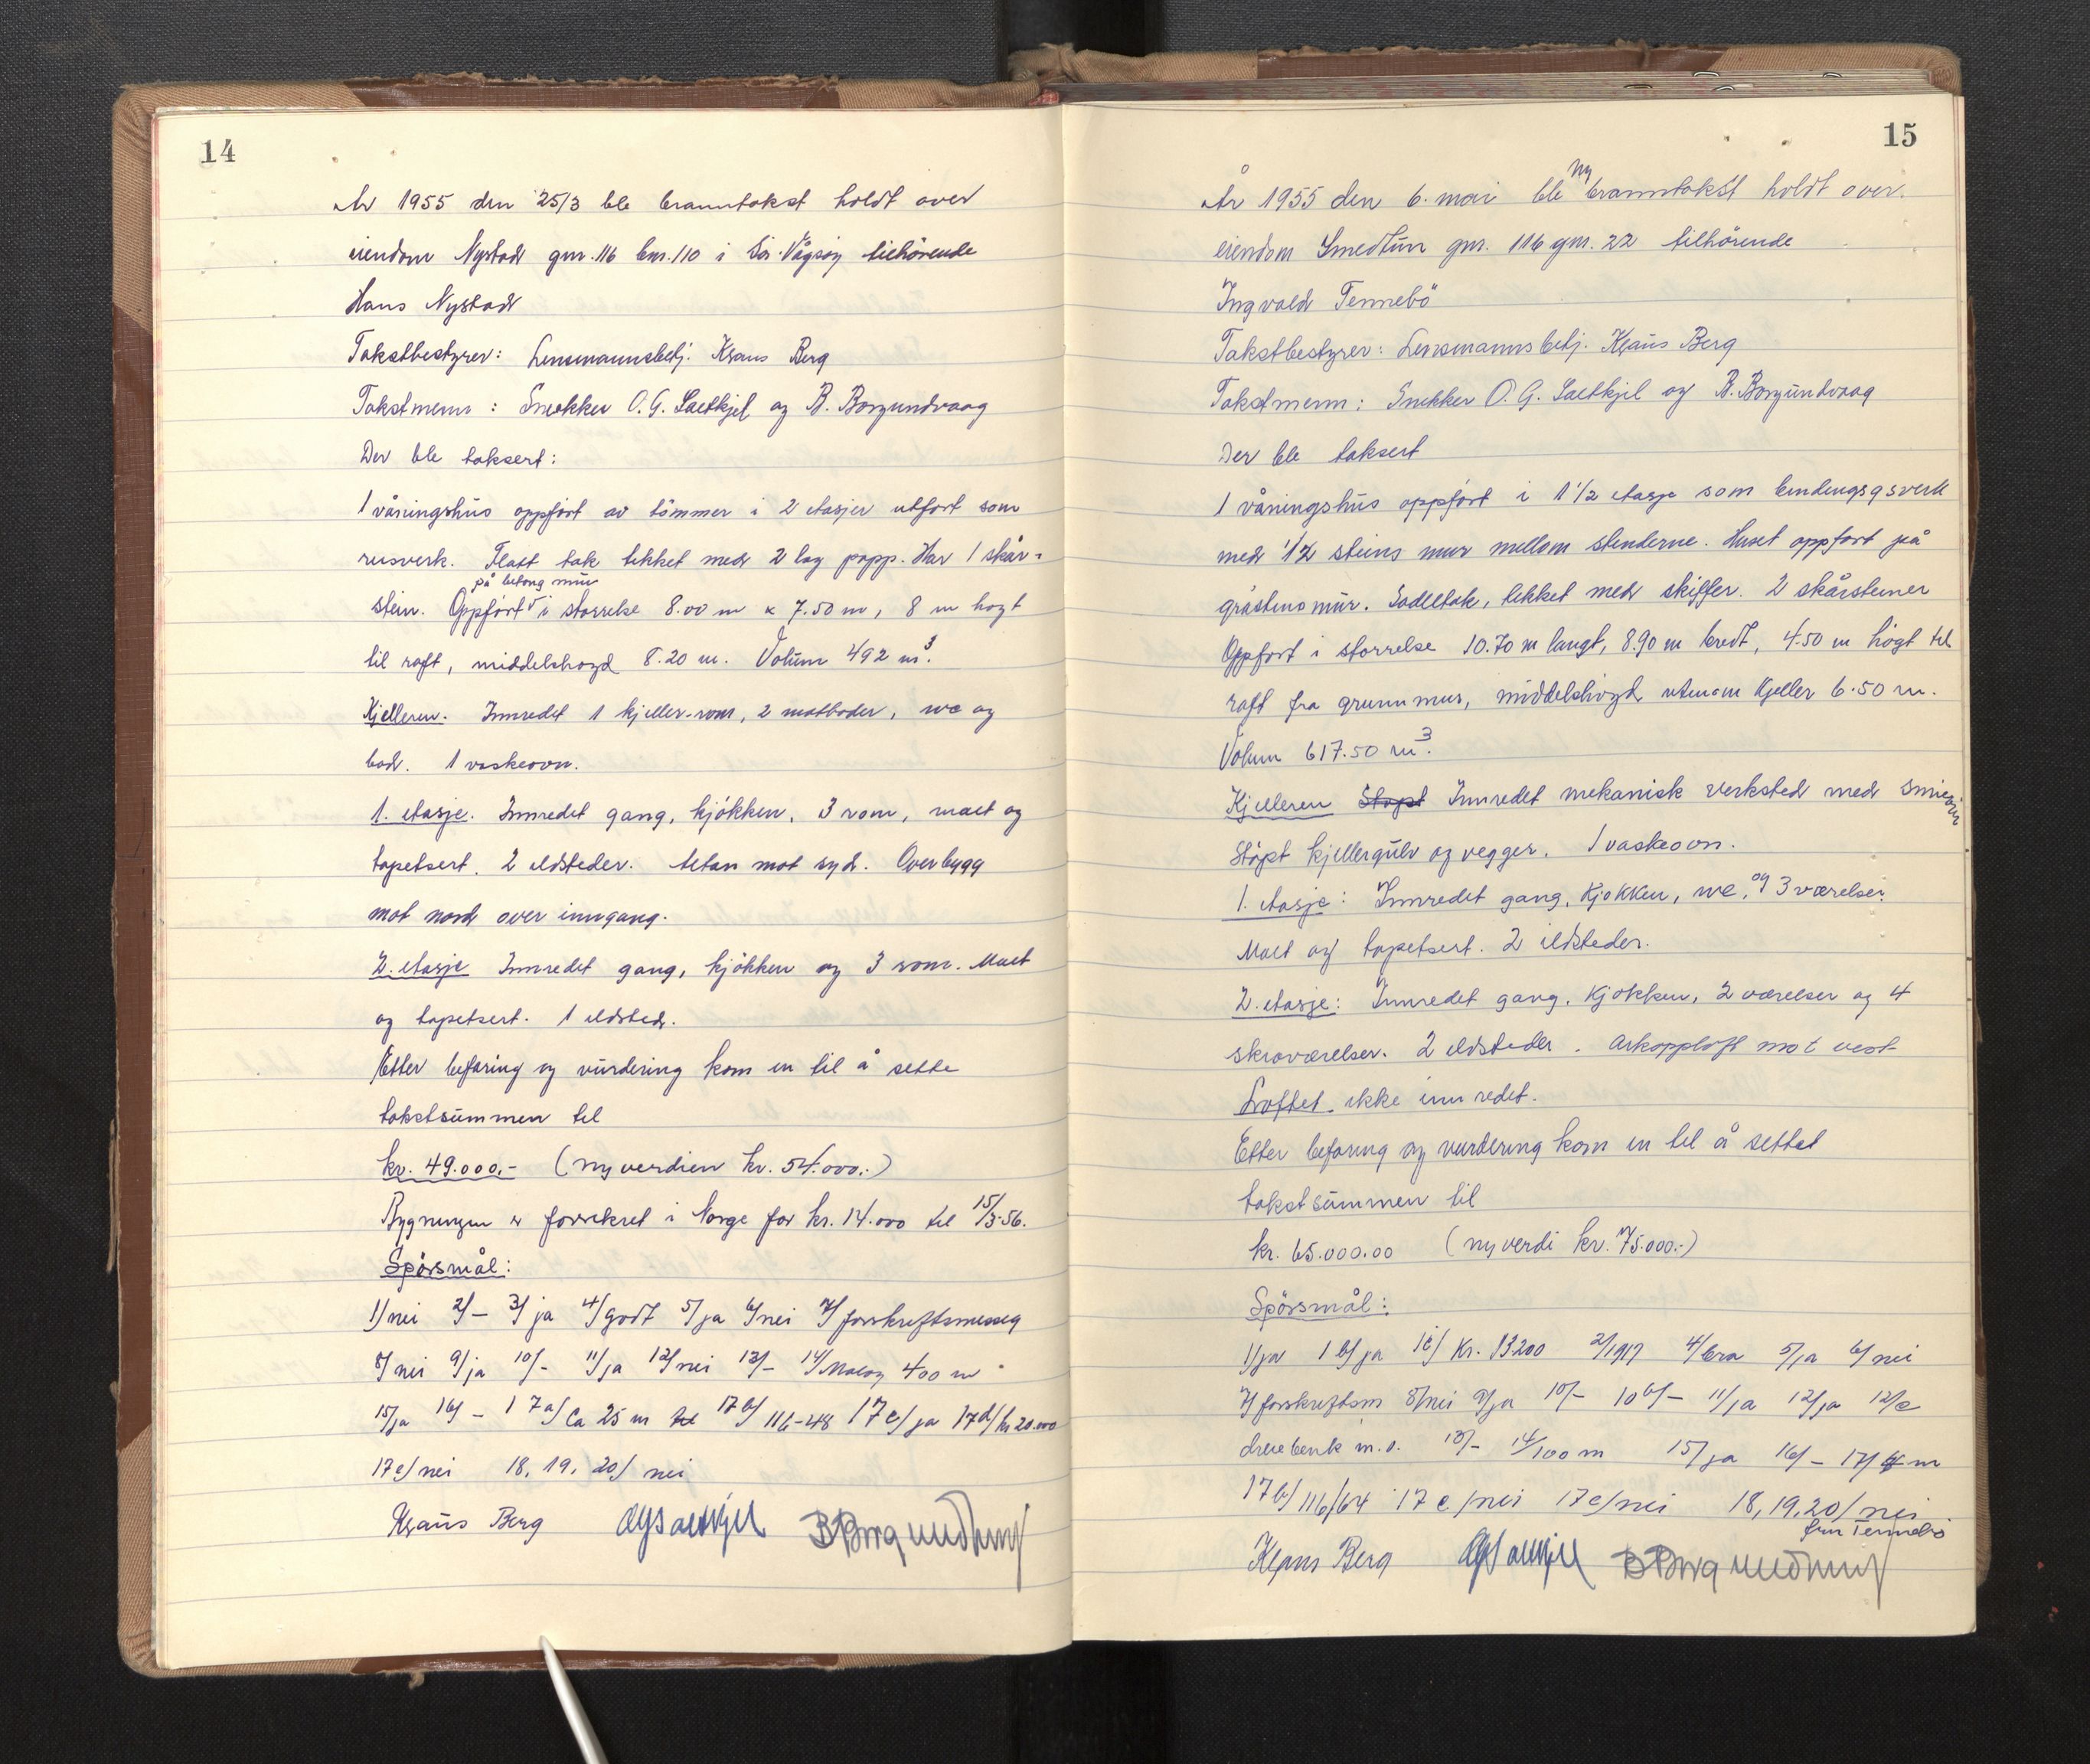 14
År 1955 den 25/3 ble branntakst holdt over
eiendom Nystad gnr. 116 bnr. 110 i Sör-Vågsöy tilhörende
Hans Nystad
Takstbestyrer: Lensmannsbetj. Klaus Berg
Takstmenn: Snekker O. G. Saltkjel og B. Borgundvaag
Der ble taksert:
1 våningshus oppfört av tömmer i 2 etasjer utfört som
reisverk. Flatt tak tekket med 2 lag papp. Har 1 skår-
på betong mur
stein. Oppfört i störrelse 8.00 m x 7.50 m, 8 m hogt
til raft, middelshogd 8.20 m. Volum 492 m³.
Kjelleren. Innredet 1 kjeller-rom, 2 matboder, wc og
bad. 1 vaskeovn.
1. etasje. Innredet gang, kjökken, 3 rom, malt og
tapetsert. 2 ildsteder. Altan mot syd. Overbygg
mot nord over inngang.
2. etasje Innredet gang, kjökken og 3 rom. Malt
og tapetsert. 1 ildsted.
Etter befaring og vurdering kom en til å sette
takstsummen til
kr. 49.000,- (nyverdien kr. 54.000.-)
Bygningen er forsikret i Norge for kr. 14.000 til 15/3-56.
Spörsmål:
1/ nei 2/ - 3/ ja 4/ godt 5/ ja 6/ nei 7/ forskriftsmessig
8/ nei 9/ ja 10/ - 11/ ja 12/ nei 13/ - 14/ Måloy 400 m
15/ ja 16/ - 17a/ ca 25 m 17b/ 116-48 17c/ ja 17d/ kr 20.000
17e/ nei 18, 19, 20/ nei
Klaus Berg OGSaltkjel BBorgundvaag
15
ny
År 1955 den 6. mai ble branntakst holdt over.
eiendom Smedtun gnr. 116 gnr. 22 tilhörende
Ingvald Tennebö
Takstbestyrer: Lensmannsbetj. Klaus Berg
Takstmenn: Snekker O. G. Saltkjel og B. Borgundvaag
Der ble taksert
1 våningshus oppfört i 1 1/2 etasje som bindingsgsverk
med 1/2 steins mur mellom stenderne. Huset oppfört på
gråstensmur. Sadeltak, tekket med skiffer. 2 skårsteiner
Oppfört i störrelse 10.70 m langt, 8.90 m bredt, 4.50 m högt til
raft fra grunnmur, middelshögd utenom kjeller 6.50 m.
Volum 617.50 m³.
Kjelleren Stöpt Innredet mekanisk verksted med smie
Stöpt kjellergulv og vegger. 1 vaskeovn.
1. etasje: Innredet gang, kjökken, wc, og 3 værelser.
Malt og tapetsert. 2 ildsteder.
2. etasje: Innredet gang, kjökken, 2 værelser og 4
skråværelser. 2 ildsteder. Arkopploft mot vest
Loftet. ikke innredet.
Etter befaring og vurdering kom en til å settet
takstsummen til
kr. 65.000.00 (nyverdi kr. 75.000.-)
Spörsmål:
1/ ja 1 b/ ja 1c/ Kr. 13200 2/ 1917 4/ bra 5/ ja 6/ nei
7/ forskriftsm 8/ nei 9/ ja 10/ - 10b/ - 11/ ja 12/ ja 12/c
dreiebenk m.v. 13/ - 14/ 100 m 15/ ja 16/ - 17/ 4 m
17b/ 116/64 17 c/ nei 17e/ nei 18, 19, 20/ nei
fru Tennebö
Klaus Berg OGSaltkjel BBorgundvaag